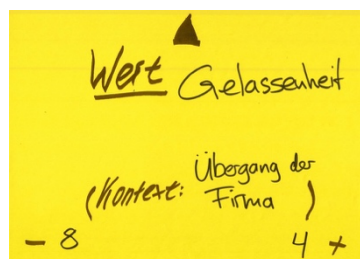 Wert Gelassenheit
(Kontext: Übergang der
Firma )
- 8 4 +